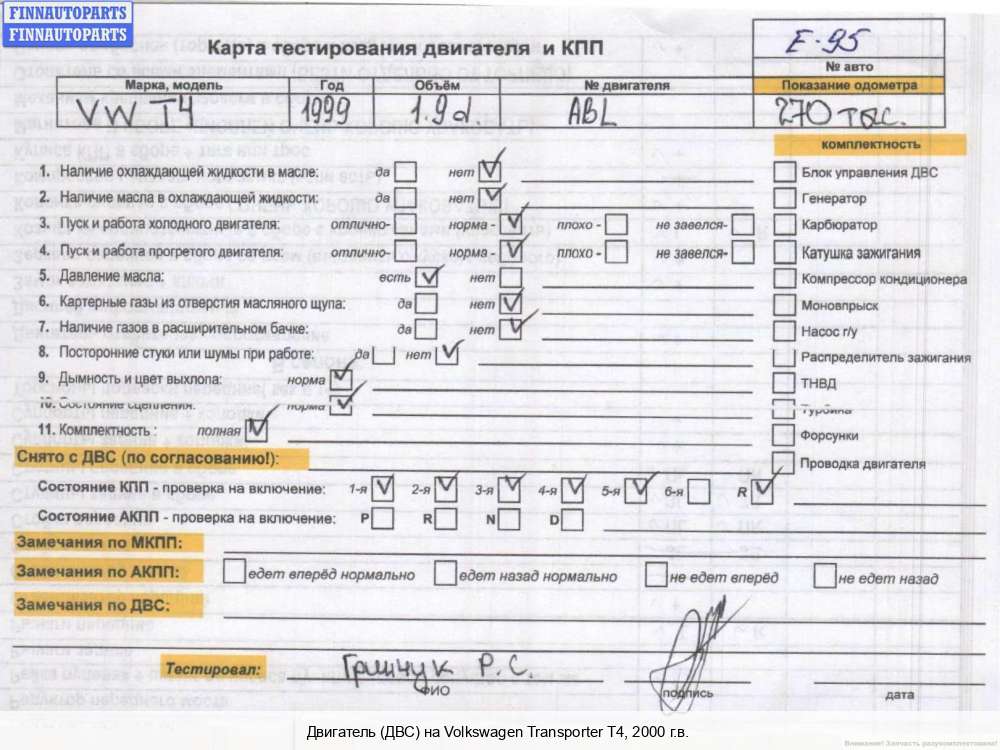 FINNAUTOPARTS
FINNAUTOPARTS
Карта тестирования двигателя и КПП
E-95
№ авто
Марка, модель Год Объём № двигателя Показание одометра
VW T4 1999 1.9d. ABL 270 тыс.
комплектность
1. Наличие охлаждающей жидкости в масле: да нет Блок управления ДВС
2. Наличие масла в охлаждающей жидкости: да нет Генератор
3. Пуск и работа холодного двигателя: отлично- норма - плохо - не завелся- Карбюратор
4. Пуск и работа прогретого двигателя: отлично- норма - плохо - не завелся- Катушка зажигания
5. Давление масла: есть нет Компрессор кондиционера
6. Картерные газы из отверстия масляного щупа: да нет Моновпрыск
7. Наличие газов в расширительном бачке: да нет Насос г/у
8. Посторонние стуки или шумы при работе: да нет Распределитель зажигания
9. Дымность и цвет выхлопа: норма ТНВД
10. Состояние сцепления: норма Турбина
11. Комплектность : полная Форсунки
Снято с ДВС (по согласованию!): Проводка двигателя
Состояние КПП - проверка на включение: 1-я 2-я 3-я 4-я 5-я 6-я R
Состояние АКПП - проверка на включение: P R N D
Замечания по МКПП:
Замечания по АКПП: едет вперёд нормально едет назад нормально не едет вперёд не едет назад
Замечания по ДВС:
Тестировал: Гринчук Р. С.
ФИО подпись дата
Двигатель (ДВС) на Volkswagen Transporter T4, 2000 г.в.
Внимание! Запчасть разукомплектована!